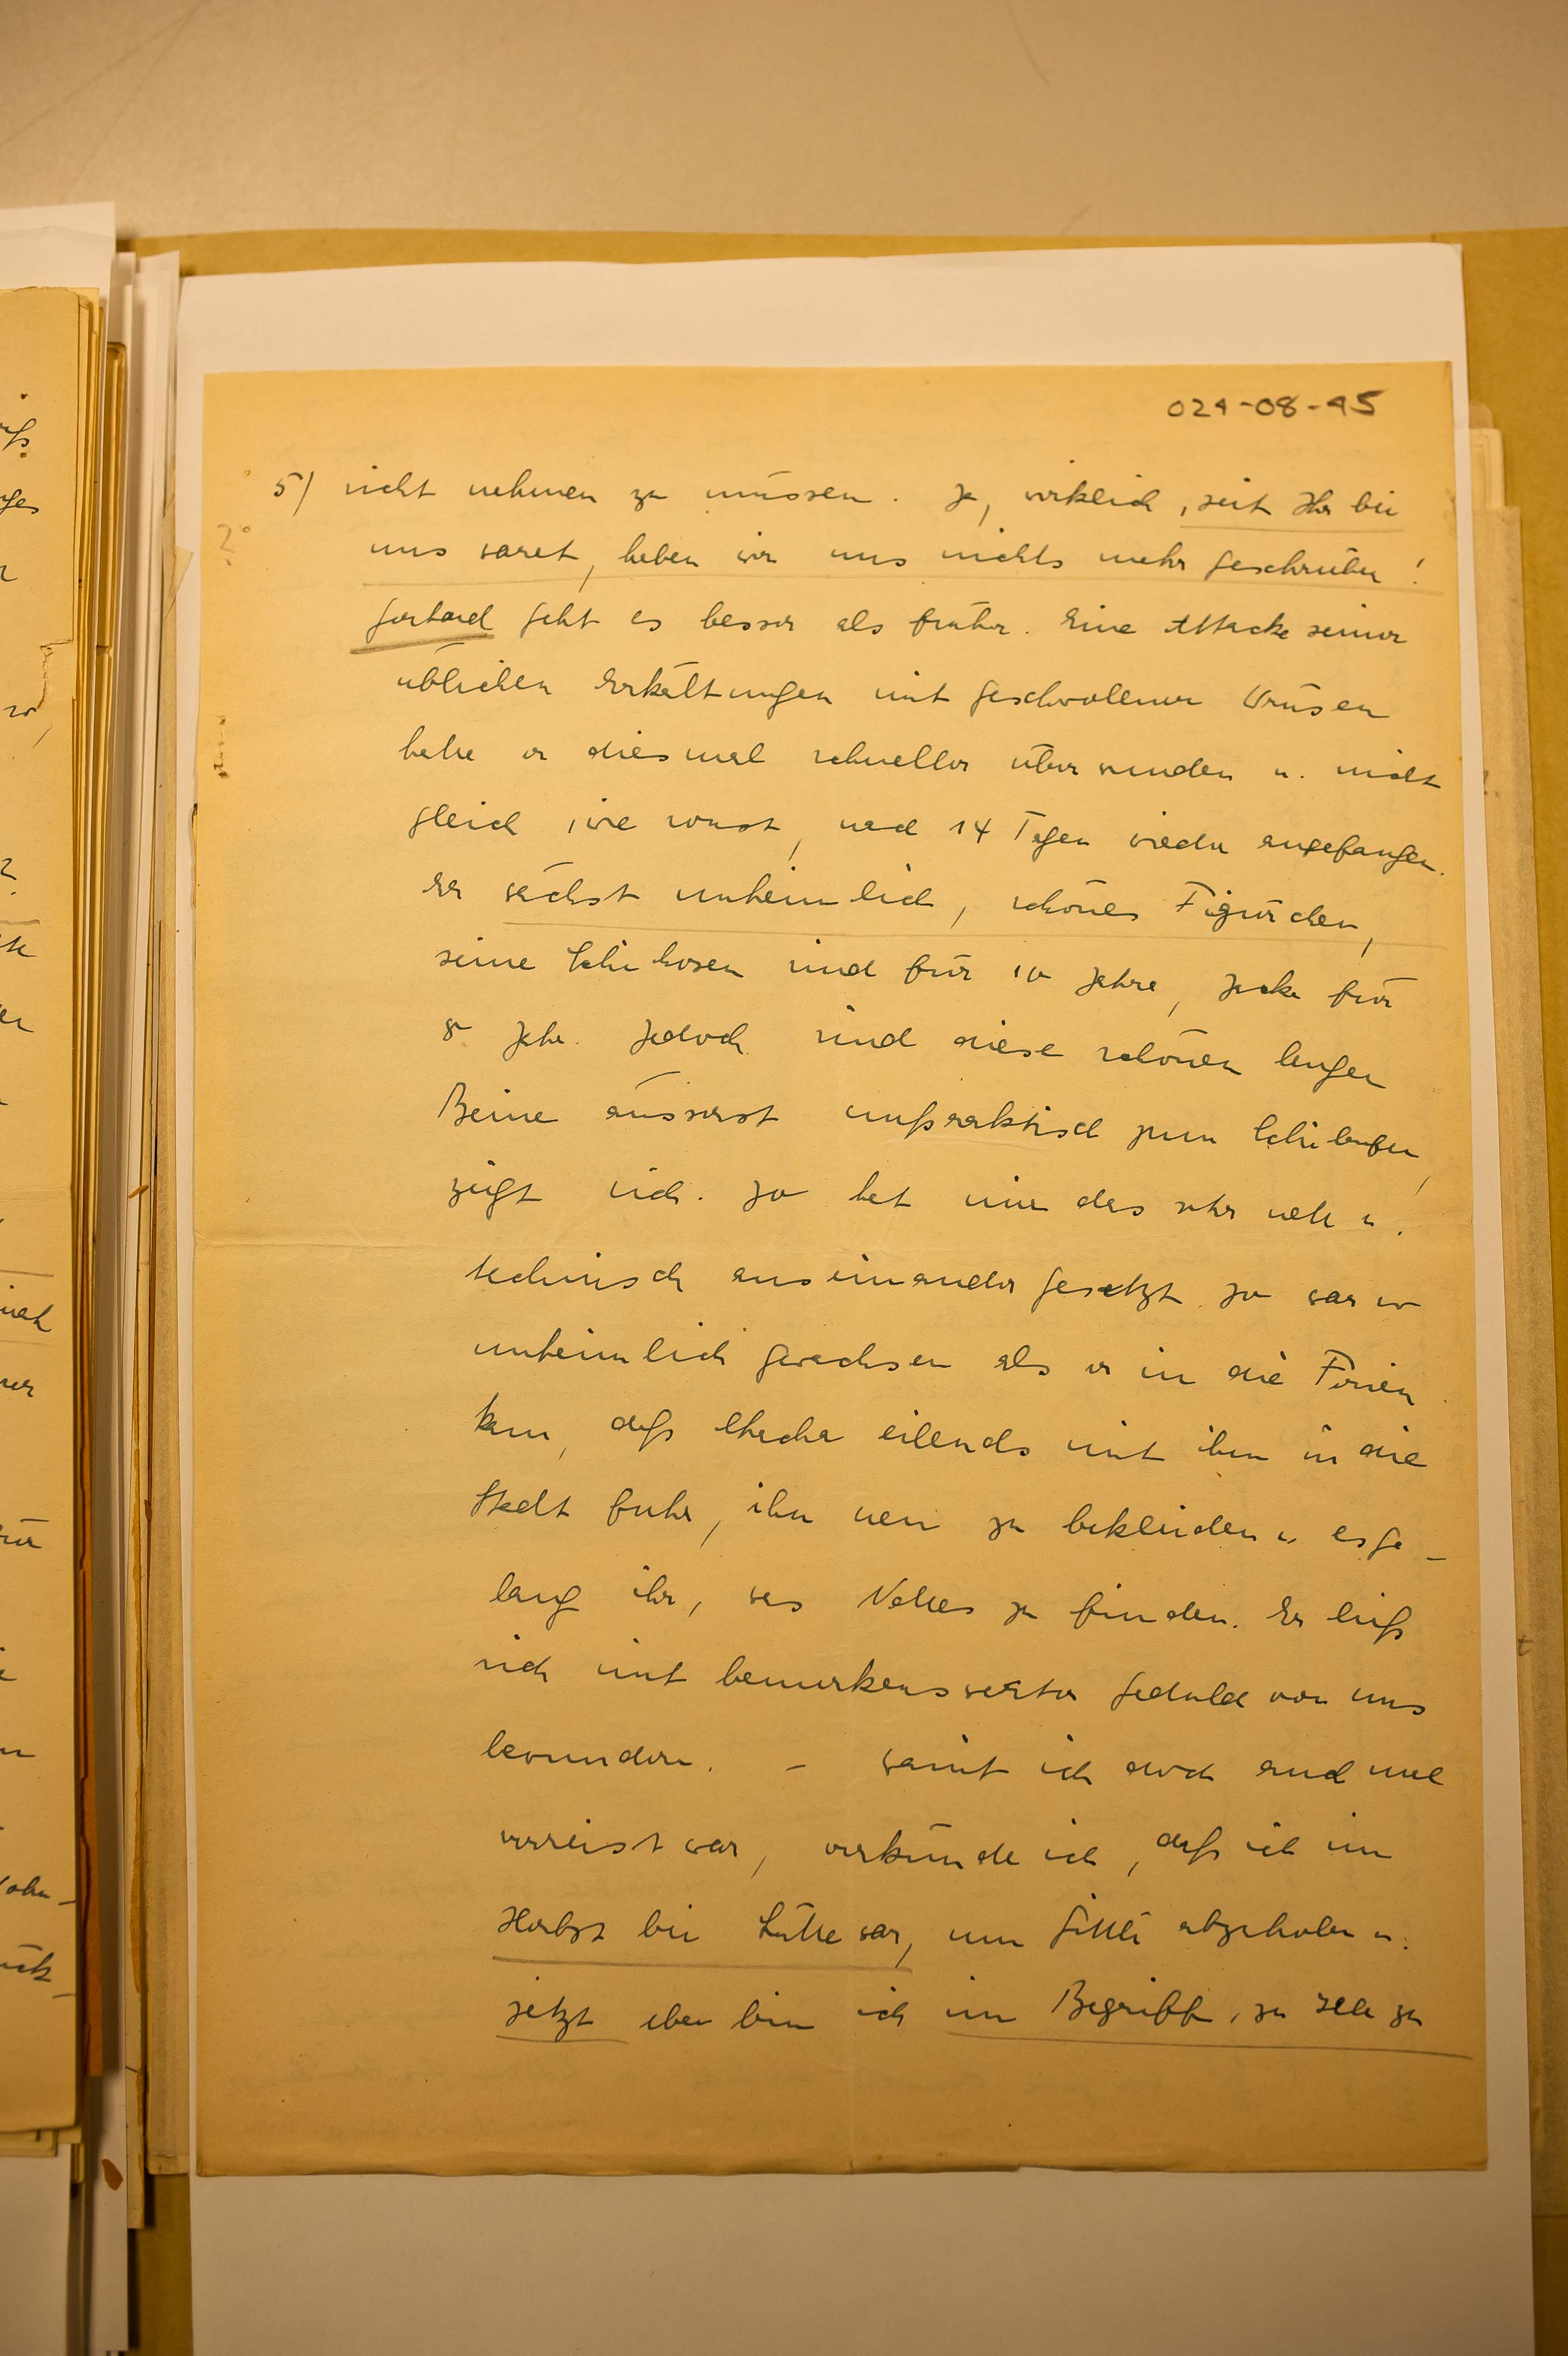 024-08-45
5) nicht nehmen zu müssen. Ja, wirklich, seit Ihr bei
uns waret, haben wir uns nichts mehr geschrieben!
Gerhard geht es besser als früher. Eine Attacke seiner
üblichen Erkältungen mit geschwollenen Drüsen
habe er diesmal schneller überwunden u. nicht
gleich, wie sonst, nach 14 Tagen wieder angefangen.
Er wächst unheimlich, schönes Figürchen,
seine Schihosen sind für 10 Jahre, Jacke für
8 Jahr. Jedoch sind diese schönen langen
Beine äusserst unpraktisch zum Schilaufen,
zeigt sich. So hat mir das sehr nett u.
technisch auseinandergesetzt. So war er
unheimlich gewachsen als er in die Ferien
kam, daß eilends mit ihm in die
Stadt fuhr, ihn neu zu bekleiden u. es ge-
lang ihr, was Nettes zu finden. Er ließ
sich mit bemerkenswerter Geduld von uns
bewundern. – Damit ich doch auch mal
verreist war, verkünde ich, daß ich im
Herbst bei Lütte war, um Gitti abzuholen u.
jetzt eben bin ich im Begriff, zu zu
ohn-